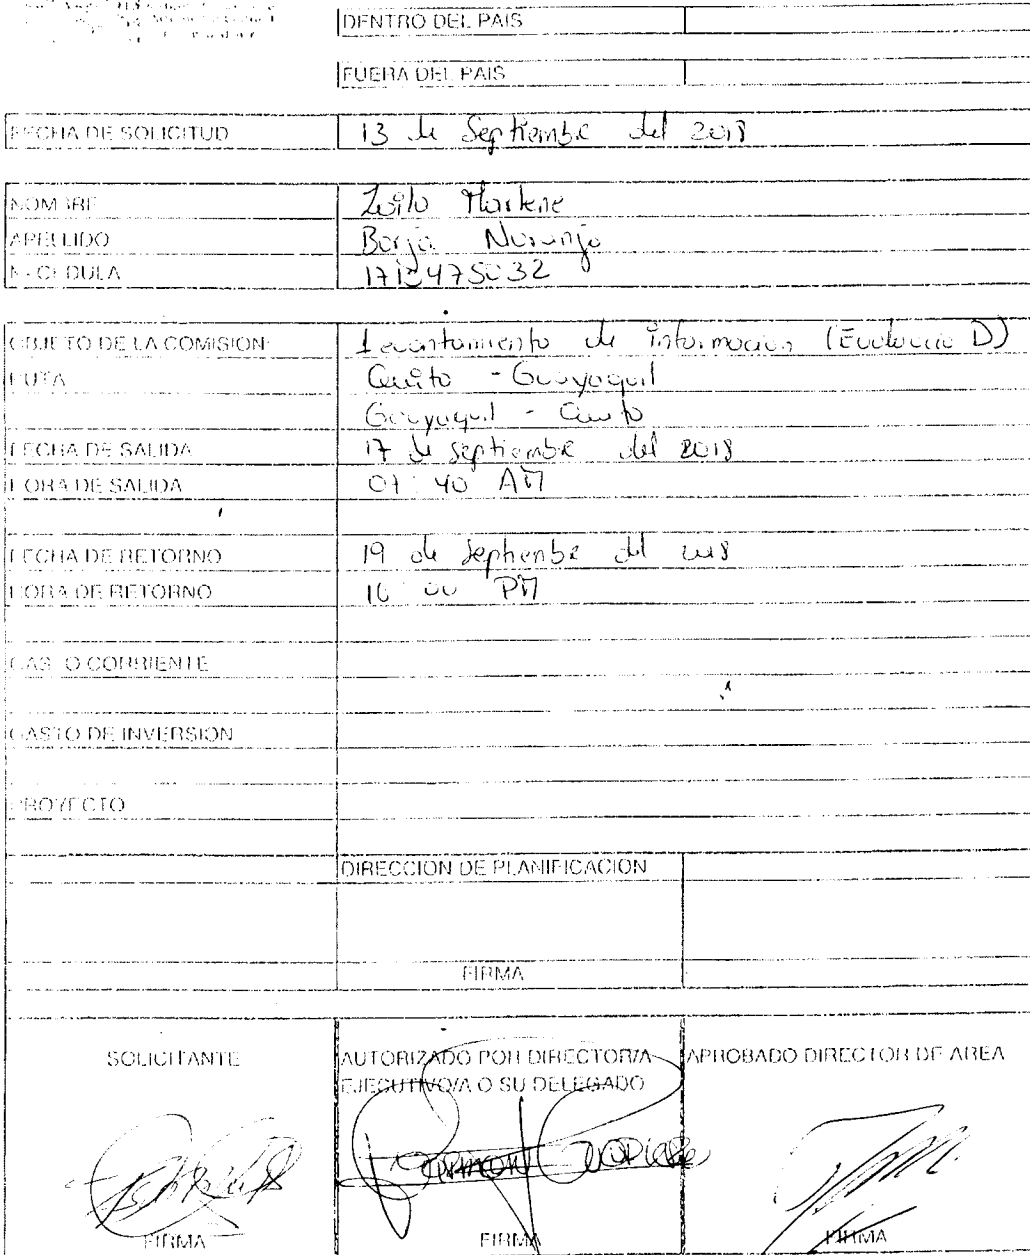 DENTRO DEL PAIS
FUERA DEL PAIS
FECHA DE SOLICITUD 13 de Septiembre del 2018
NOMBRE Marlene
APELLIDO Borja Naranjo
N. CEDULA
OBJETO DE LA COMISION: Levantamiento de información
RUTA Quito - Guayaquil
Guayaquil - Quito
FECHA DE SALIDA 17 de septiembre del 2018
HORA DE SALIDA 07:40 AM
FECHA DE RETORNO 19 de septiembre del 2018
HORA DE RETORNO 00 PM
GASTO CORRIENTE
GASTO DE INVERSION
PROYECTO
DIRECCION DE PLANIFICACION
FIRMA
SOLICITANTE AUTORIZADO POR DIRECTOR/A APROBADO DIRECTOR DE AREA
EJECUTIVO/A O SU DELEGADO
FIRMA FIRMA FIRMA